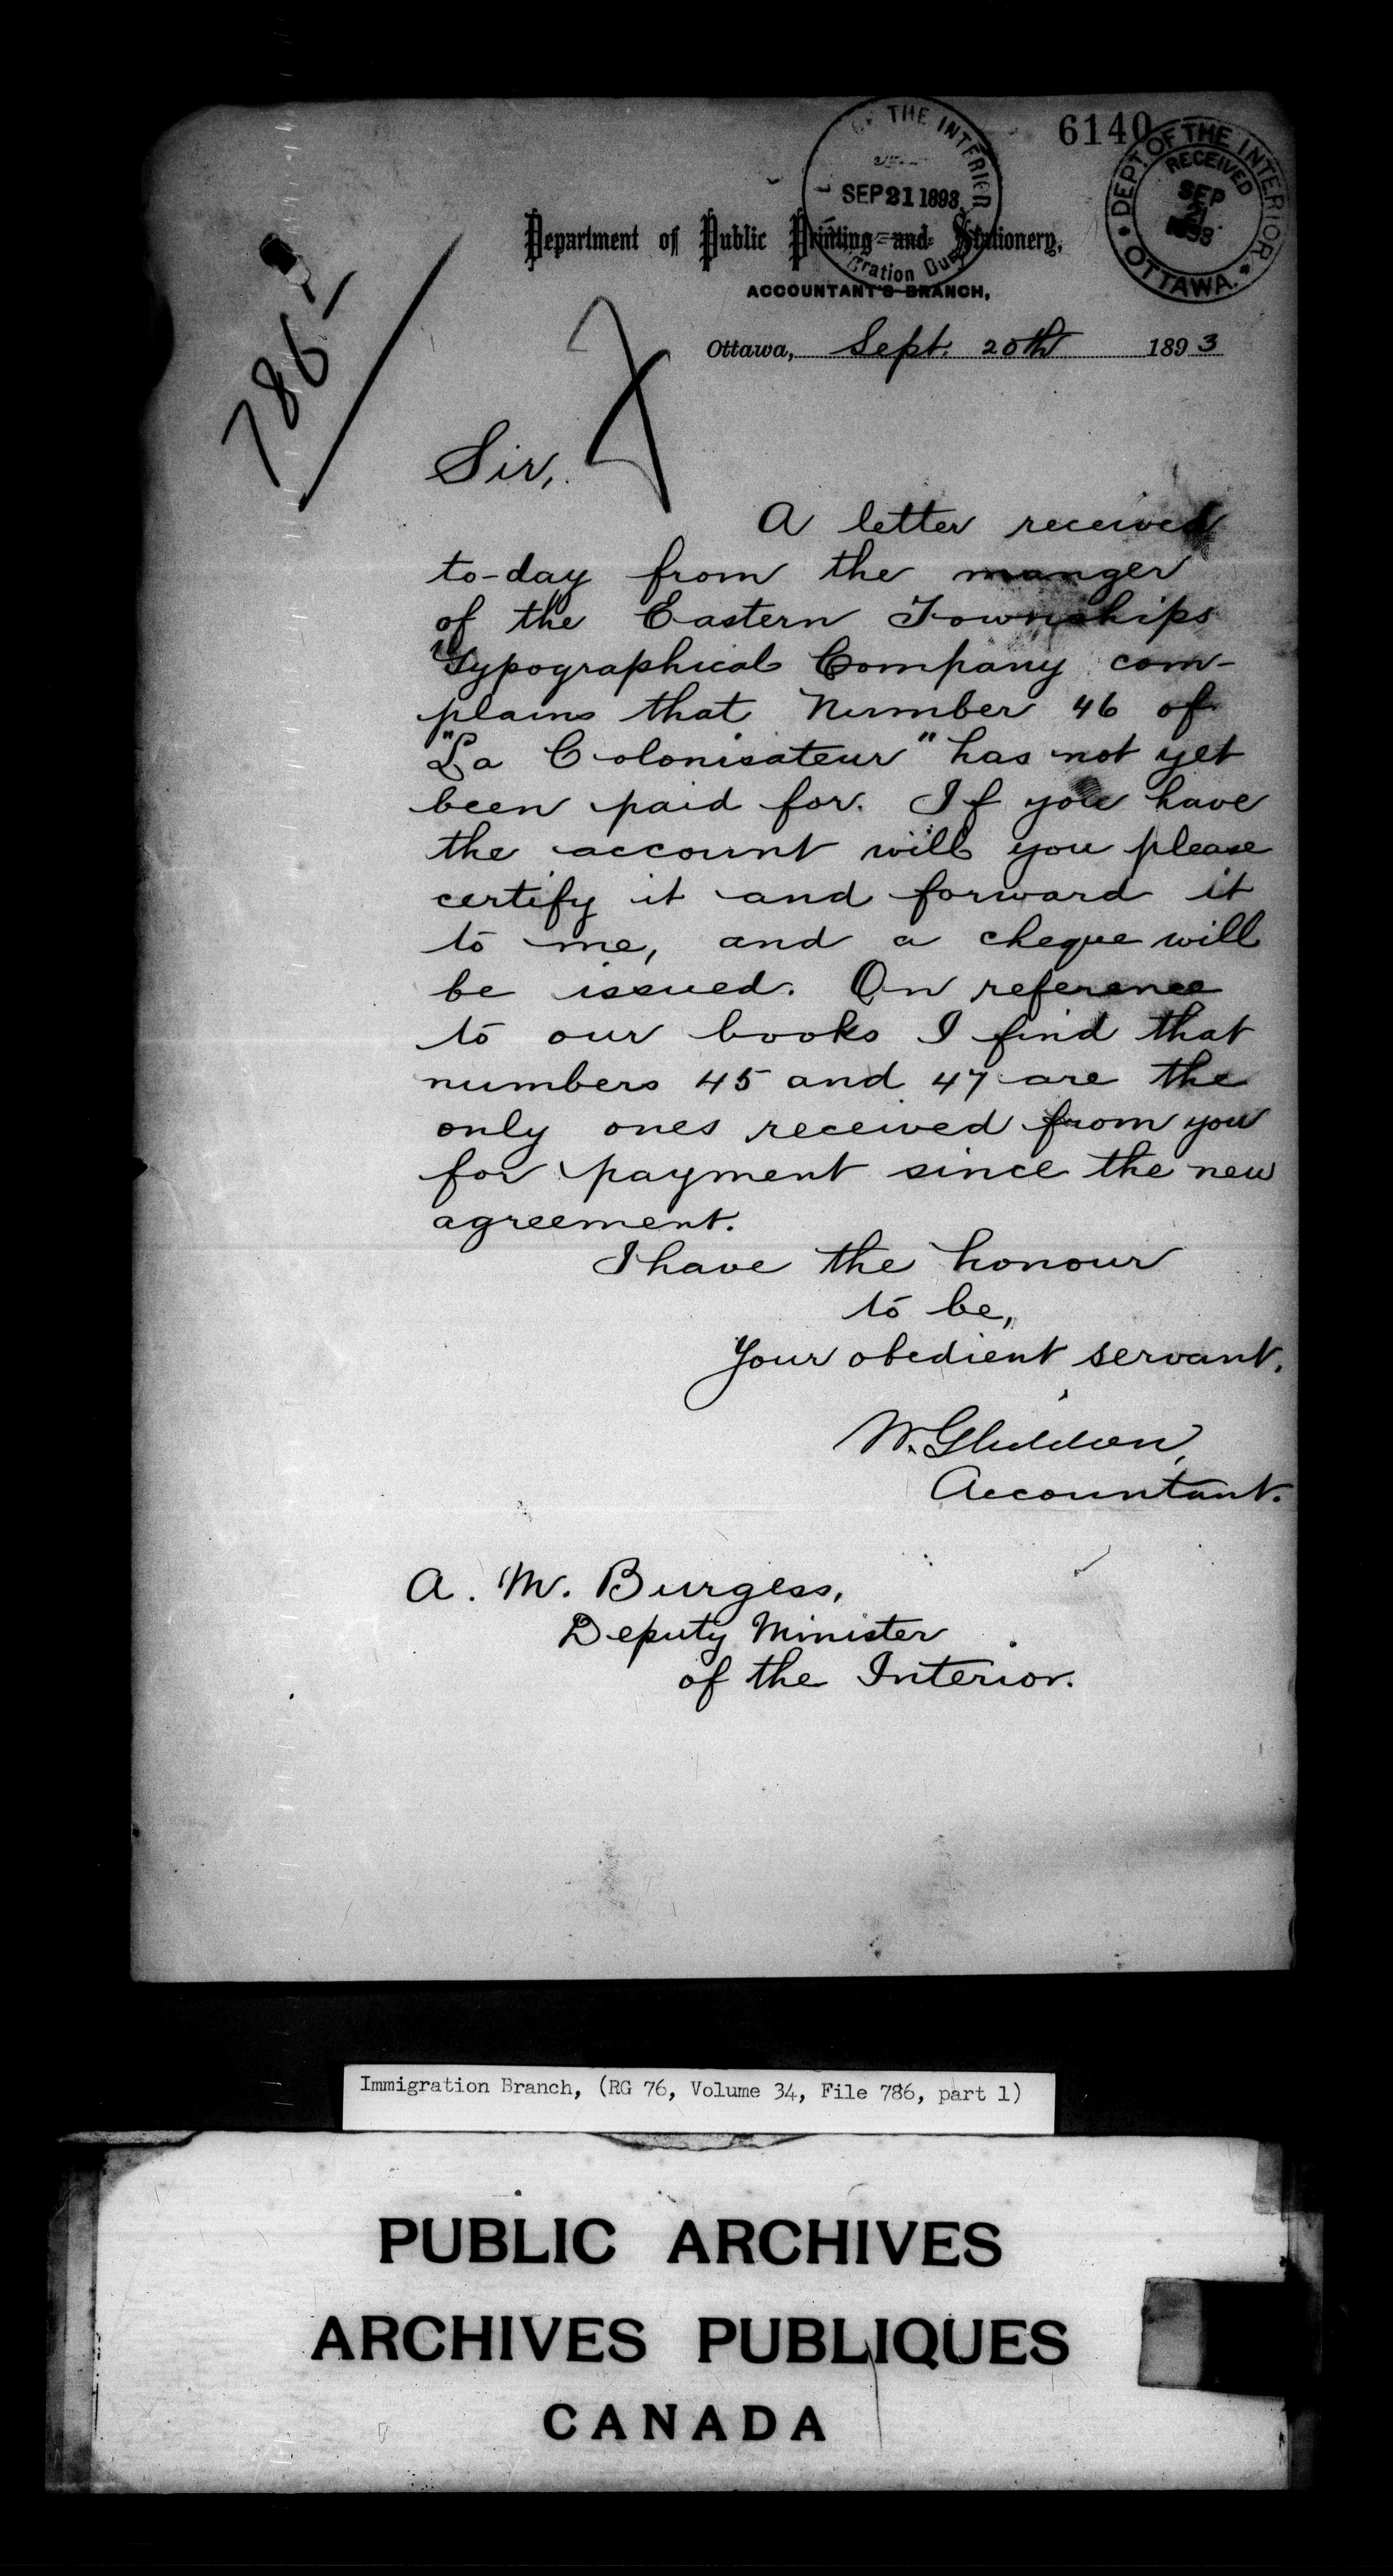 6140
OF THE INTERIOR
SEP 21 1893
DEPT. OF THE INTERIOR
RECEIVED
SEP
21
1893
OTTAWA.
Department of Public Printing and Stationery,
ACCOUNTANT'S BRANCH,
786
Ottawa, Sept. 20th 1893
Sir,
A letter received
to-day from the manger
of the Eastern Townships
Typographical Company com-
plains that Number 46 of
"La Colonisateur" has not yet
been paid for. If you have
the account will you please
certify it and forward it
to me, and a cheque will
be issued. On reference
to our books I find that
numbers 45 and 47 are the
only ones received from you
for payment since the new
agreement.
I have the honour
to be,
Your obedient servant.
W. Gliddon,
Accountant.
A. M. Burgess,
Deputy Minister
of the Interior.
Immigration Branch, (RG 76, Volume 34, File 786, part 1)
PUBLIC ARCHIVES
ARCHIVES PUBLIQUES
CANADA